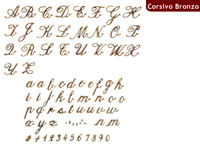 Corsivo Bronzo
A B C D E F G H
I J K L M N O P
Q R S T U V W X
Y Z
a a b c d e e f g h
i i j k l m n o o
p q r s t u u v w
x y z . , : , - n m
0 + 1 2 3 4 5 6 7 8 9 0